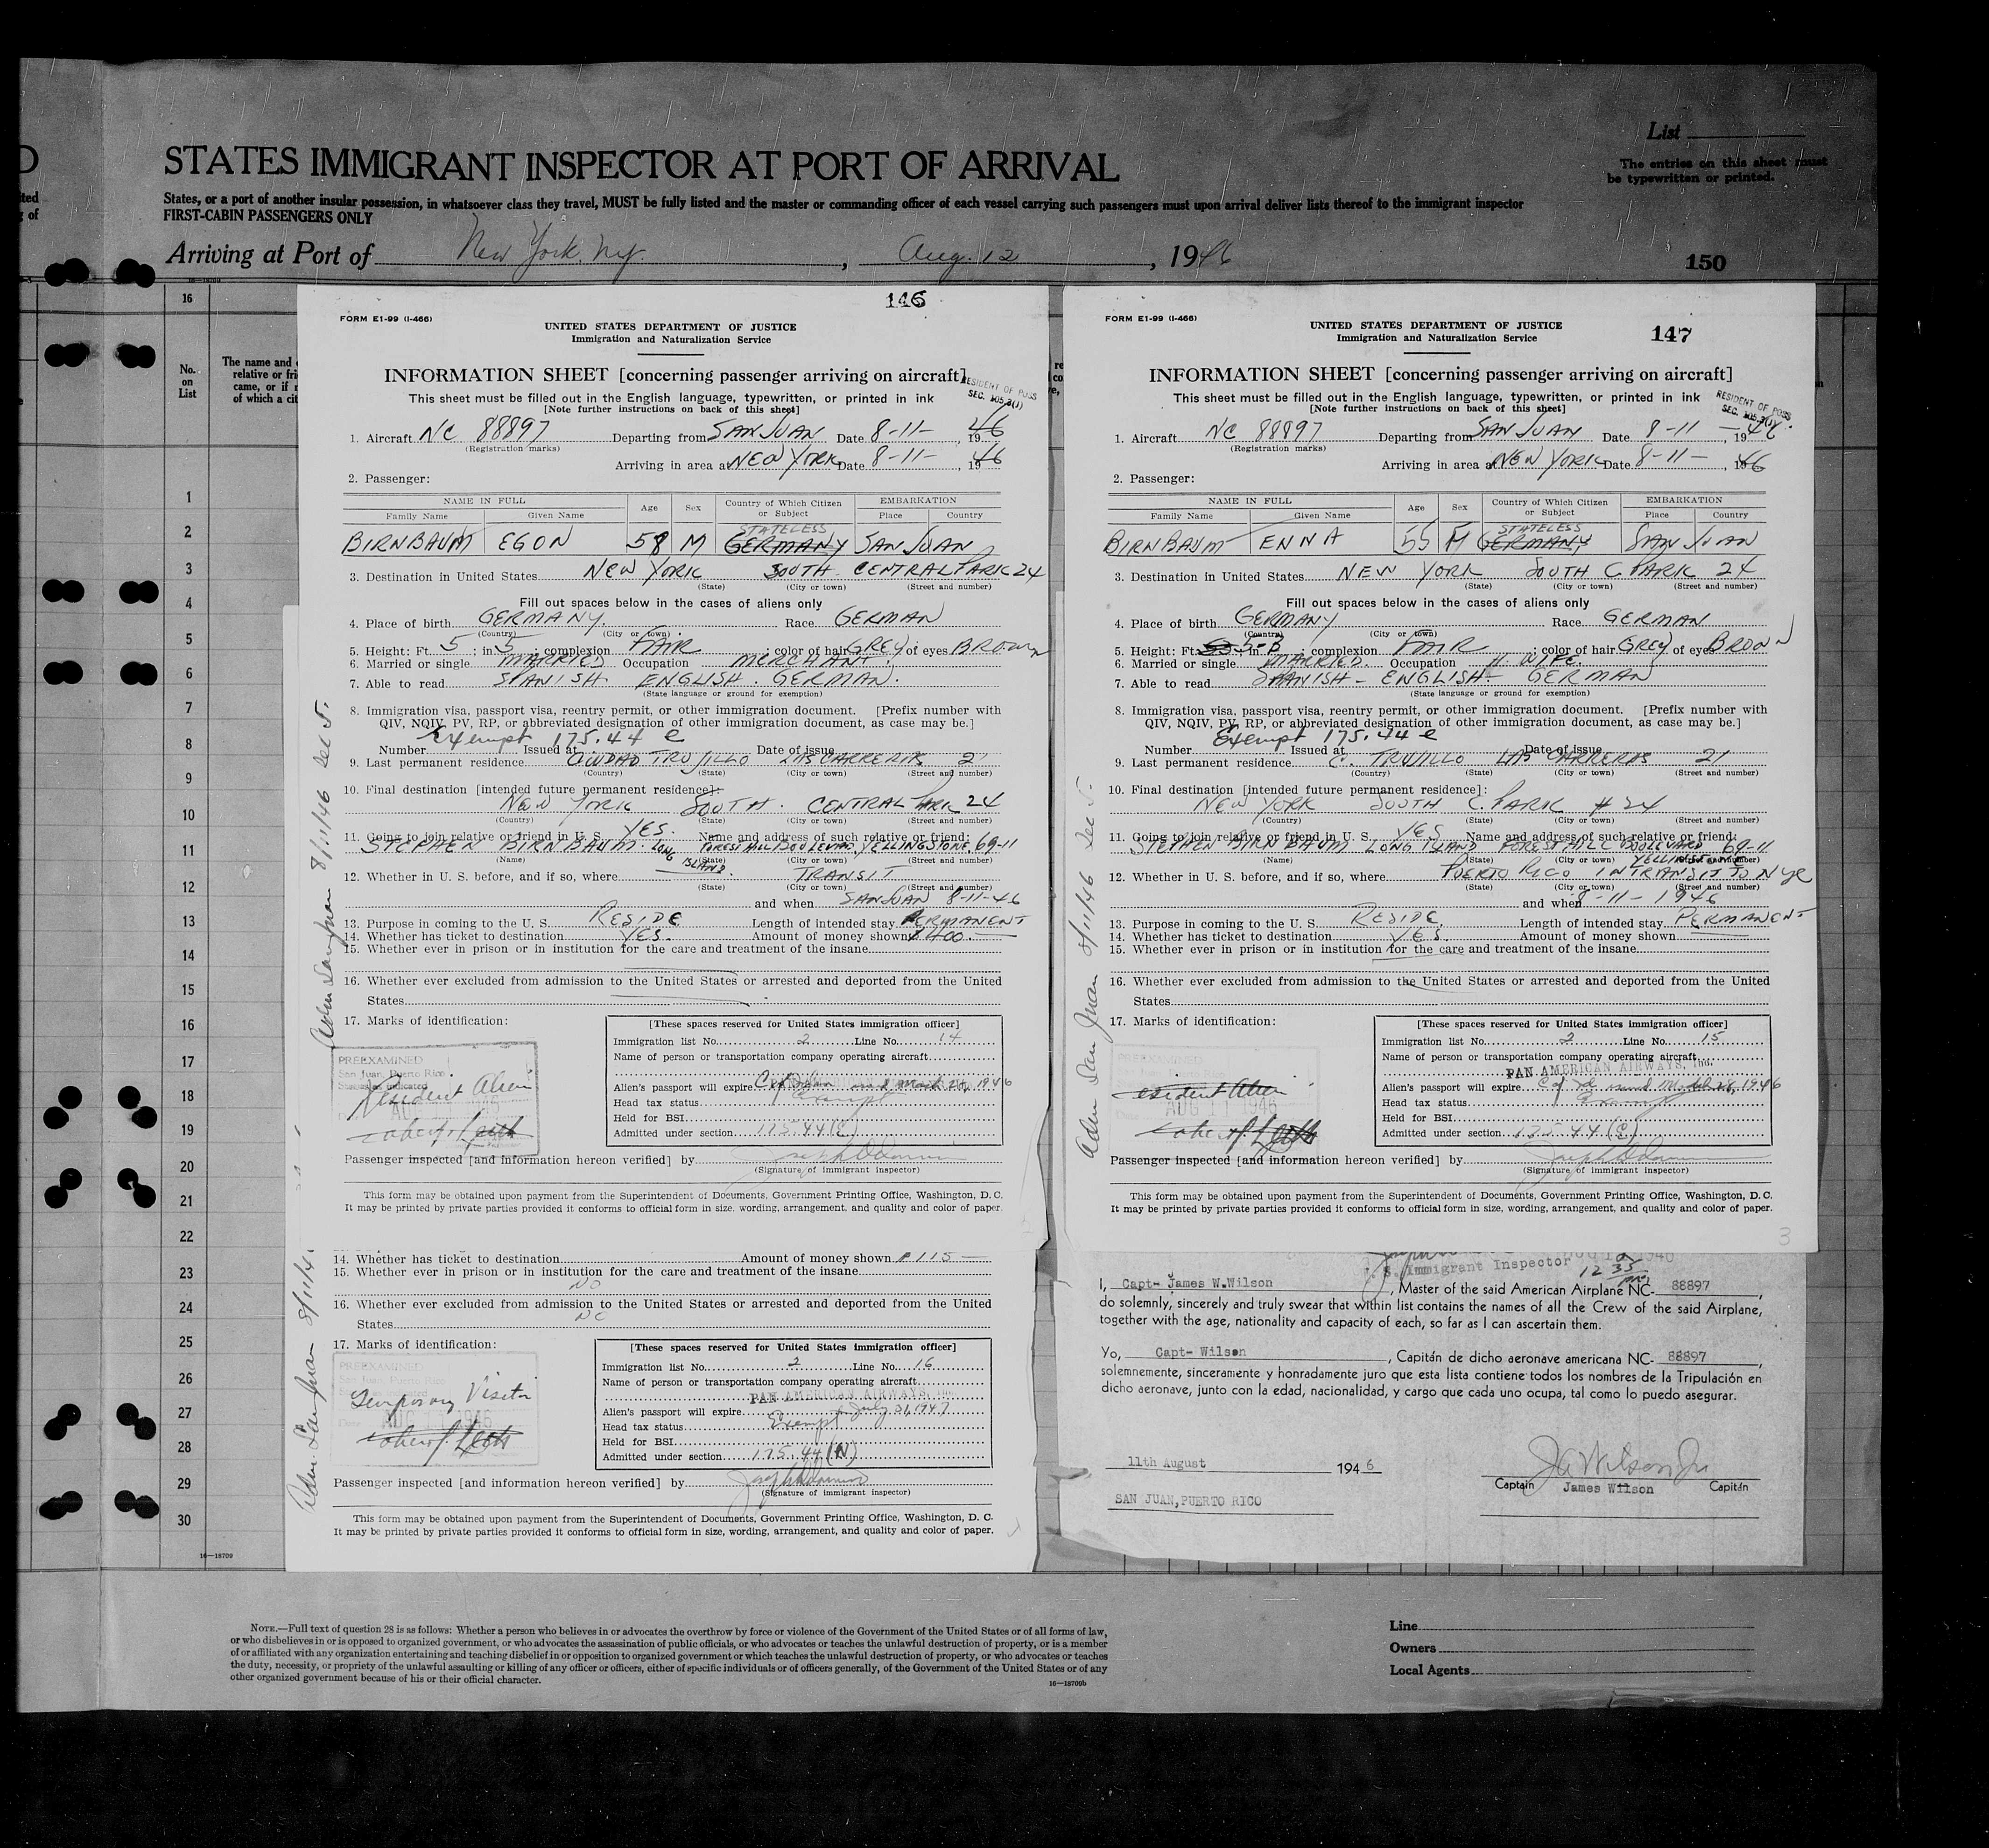 List
The entries on this sheet must
be typewritten or printed.
STATES IMMIGRANT INSPECTOR AT PORT OF ARRIVAL
States, or a port of another insular possession, in whatsoever class they travel, MUST be fully listed and the master or commanding officer of each vessel carrying such passengers must upon arrival deliver lists thereof to the immigrant inspector
FIRST-CABIN PASSENGERS ONLY
Arriving at Port of New York, N.Y. , Aug. 12 , 1946
150
16
No.
on
List
The name and
relative or fri
came, or if n
of which a cit
1
2
3
4
5
6
7
8
9
10
11
12
13
14
15
16
17
18
19
20
21
22
23
24
25
26
27
28
29
30
16—18709
146
FORM E1-99 (I-466)
UNITED STATES DEPARTMENT OF JUSTICE
Immigration and Naturalization Service
INFORMATION SHEET [concerning passenger arriving on aircraft]
RESIDENT OF POSS
SEC. 105.3(J)
This sheet must be filled out in the English language, typewritten, or printed in ink
[Note further instructions on back of this sheet]
1. Aircraft NC 88897 Departing from SAN JUAN Date 8-11- , 1946
(Registration marks)
Arriving in area at NEW YORK Date 8-11- , 1946
2. Passenger:
NAME IN FULL Age Sex Country of Which Citizen or Subject EMBARKATION
Family Name Given Name Place Country
STATELESS
BIRNBAUM EGON 58 M GERMANY SAN JUAN
3. Destination in United States NEW YORK SOUTH CENTRAL PARK 24
(State) (City or town) (Street and number)
Fill out spaces below in the cases of aliens only
4. Place of birth GERMANY. Race GERMAN
(Country) (City or town)
5. Height: Ft. 5 ; in 5 ; complexion FAIR ; color of hair GREY of eyes BROWN
6. Married or single MARRIED Occupation MERCHANT.
7. Able to read SPANISH ENGLISH. GERMAN.
(State language or ground for exemption)
8. Immigration visa, passport visa, reentry permit, or other immigration document. [Prefix number with
QIV, NQIV, PV, RP, or abbreviated designation of other immigration document, as case may be.]
Exempt 175.44 e
Number Issued at Date of issue
9. Last permanent residence CIUDAD TRUJILLO LAS CARRERAS 21
(Country) (State) (City or town) (Street and number)
10. Final destination [intended future permanent residence]:
NEW YORK SOUTH. CENTRAL PARK 24
(Country) (State) (City or town) (Street and number)
11. Going to join relative or friend in U. S. YES. Name and address of such relative or friend:
STEPHEN BIRNBAUM. LONG ISLAND. FOREST HILL BOULEVARD. YELLINGSTONE 69-11
(Name) (State) (City or town) (Street and number)
12. Whether in U. S. before, and if so, where TRANSIT
(State) (City or town) (Street and number)
and when SAN JUAN 8-11-46
13. Purpose in coming to the U. S. RESIDE Length of intended stay PERMANENT
14. Whether has ticket to destination YES. Amount of money shown $ 400.
15. Whether ever in prison or in institution for the care and treatment of the insane
16. Whether ever excluded from admission to the United States or arrested and deported from the United
States
17. Marks of identification:
PREEXAMINED
San Juan, Puerto Rico
Status as indicated
Resident Alien
[These spaces reserved for United States immigration officer]
Immigration list No. 2 Line No. 14
Name of person or transportation company operating aircraft
Alien's passport will expire
Head tax status Exempt
Held for BSI
Admitted under section 175.44(e)
Passenger inspected [and information hereon verified] by
(Signature of immigrant inspector)
This form may be obtained upon payment from the Superintendent of Documents, Government Printing Office, Washington, D. C.
It may be printed by private parties provided it conforms to official form in size, wording, arrangement, and quality and color of paper.
Adm San Juan 8/11/46 Sec 5.
14. Whether has ticket to destination Amount of money shown $115
15. Whether ever in prison or in institution for the care and treatment of the insane
NO
16. Whether ever excluded from admission to the United States or arrested and deported from the United
States NO
17. Marks of identification:
PREEXAMINED
San Juan, Puerto Rico
Temporary Visitor
AUG 11 1946
[These spaces reserved for United States immigration officer]
Immigration list No. 2 Line No. 16
Name of person or transportation company operating aircraft
PAN AMERICAN AIRWAYS, Inc.
Alien's passport will expire July 31, 1947
Head tax status Exempt
Held for BSI
Admitted under section 175.44(N)
Passenger inspected [and information hereon verified] by
(Signature of immigrant inspector)
This form may be obtained upon payment from the Superintendent of Documents, Government Printing Office, Washington, D. C.
It may be printed by private parties provided it conforms to official form in size, wording, arrangement, and quality and color of paper.
Adm. San Juan 8/11/4
147
FORM E1-99 (I-466)
UNITED STATES DEPARTMENT OF JUSTICE
Immigration and Naturalization Service
INFORMATION SHEET [concerning passenger arriving on aircraft]
RESIDENT OF POSS
SEC. 105.3(J).
This sheet must be filled out in the English language, typewritten, or printed in ink
[Note further instructions on back of this sheet]
1. Aircraft NC 88897 Departing from SAN JUAN Date 8-11 - 1946
(Registration marks)
Arriving in area at NEW YORK Date 8-11- , 1946
2. Passenger:
NAME IN FULL Age Sex Country of Which Citizen or Subject EMBARKATION
Family Name Given Name Place Country
STATELESS
BIRNBAUM ENNA 55 F GERMANY SAN JUAN
3. Destination in United States NEW YORK SOUTH C. PARK 24
(State) (City or town) (Street and number)
Fill out spaces below in the cases of aliens only
4. Place of birth GERMANY Race GERMAN
(Country) (City or town)
5. Height: Ft. 5-3 ; complexion FAIR ; color of hair GREY of eyes BROWN
6. Married or single MARRIED. Occupation H. WIFE.
7. Able to read SPANISH - ENGLISH - GERMAN
(State language or ground for exemption)
8. Immigration visa, passport visa, reentry permit, or other immigration document. [Prefix number with
QIV, NQIV, PV, RP, or abbreviated designation of other immigration document, as case may be.]
Exempt 175.44 e
Number Issued at Date of issue
9. Last permanent residence C. TRUJILLO LAS CARRERAS 21
(Country) (State) (City or town) (Street and number)
10. Final destination [intended future permanent residence]:
NEW YORK SOUTH C. PARK # 24
(Country) (State) (City or town) (Street and number)
11. Going to join relative or friend in U. S. YES Name and address of such relative or friend:
STEPHEN BIRNBAUM LONG ISLAND FOREST HILL BOULEVARD 69-11
(Name) (State) (City or town) (Street and number)
12. Whether in U. S. before, and if so, where PUERTO RICO IN TRANSIT TO NYC
(State) (City or town) (Street and number)
and when 8-11-1946
13. Purpose in coming to the U. S. RESIDE Length of intended stay PERMANENT
14. Whether has ticket to destination YES. Amount of money shown
15. Whether ever in prison or in institution for the care and treatment of the insane
16. Whether ever excluded from admission to the United States or arrested and deported from the United
States
17. Marks of identification:
Resident Alien
AUG 11 1946
[These spaces reserved for United States immigration officer]
Immigration list No. 2 Line No. 15
Name of person or transportation company operating aircraft
PAN AMERICAN AIRWAYS, Inc.
Alien's passport will expire
Head tax status Exempt
Held for BSI
Admitted under section 175.44 (e)
Passenger inspected [and information hereon verified] by
(Signature of immigrant inspector)
This form may be obtained upon payment from the Superintendent of Documents, Government Printing Office, Washington, D. C.
It may be printed by private parties provided it conforms to official form in size, wording, arrangement, and quality and color of paper.
3
Adm San Juan 8/11/46 Sec 5.
U. S. Immigrant Inspector
12 35 pm
I, Capt- James W.Wilson , Master of the said American Airplane NC- 88897 ,
do solemnly, sincerely and truly swear that within list contains the names of all the Crew of the said Airplane,
together with the age, nationality and capacity of each, so far as I can ascertain them.
Yo, Capt- Wilson , Capitán de dicho aeronave americana NC- 88897 ,
solemnemente, sinceramente y honradamente juro que esta lista contiene todos los nombres de la Tripulación en
dicho aeronave, junto con la edad, nacionalidad, y cargo que cada uno ocupa, tal como lo puedo asegurar.
11th August 1946
JW Wilson Jr
Captain James Wilson Capitán
SAN JUAN,PUERTO RICO
NOTE.—Full text of question 28 is as follows: Whether a person who believes in or advocates the overthrow by force or violence of the Government of the United States or of all forms of law,
or who disbelieves in or is opposed to organized government, or who advocates the assassination of public officials, or who advocates or teaches the unlawful destruction of property, or is a member
of or affiliated with any organization entertaining and teaching disbelief in or opposition to organized government or which teaches the unlawful destruction of property, or who advocates or teaches
the duty, necessity, or propriety of the unlawful assaulting or killing of any officer or officers, either of specific individuals or of officers generally, of the Government of the United States or of any
other organized government because of his or their official character.
16—18709b
Line
Owners
Local Agents